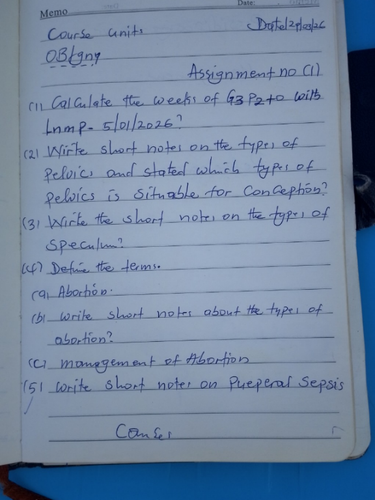 Memo Date:
Course units
OB/gny
Assignment no (1)
(1) Calculate the weeks of G3 P2+0 with
Lnmp- 5/01/2026?
(2) Write short notes on the types of
pelvics and stated which types of
pelvics is situable for Conception?
(3) Write the short notes on the types of
speculum?
(4) Define the terms.
(a) Abortion.
(b) write short notes about the types of
abortion?
(c) management of Abortion
(5) write short notes on Pueperal Sepsis